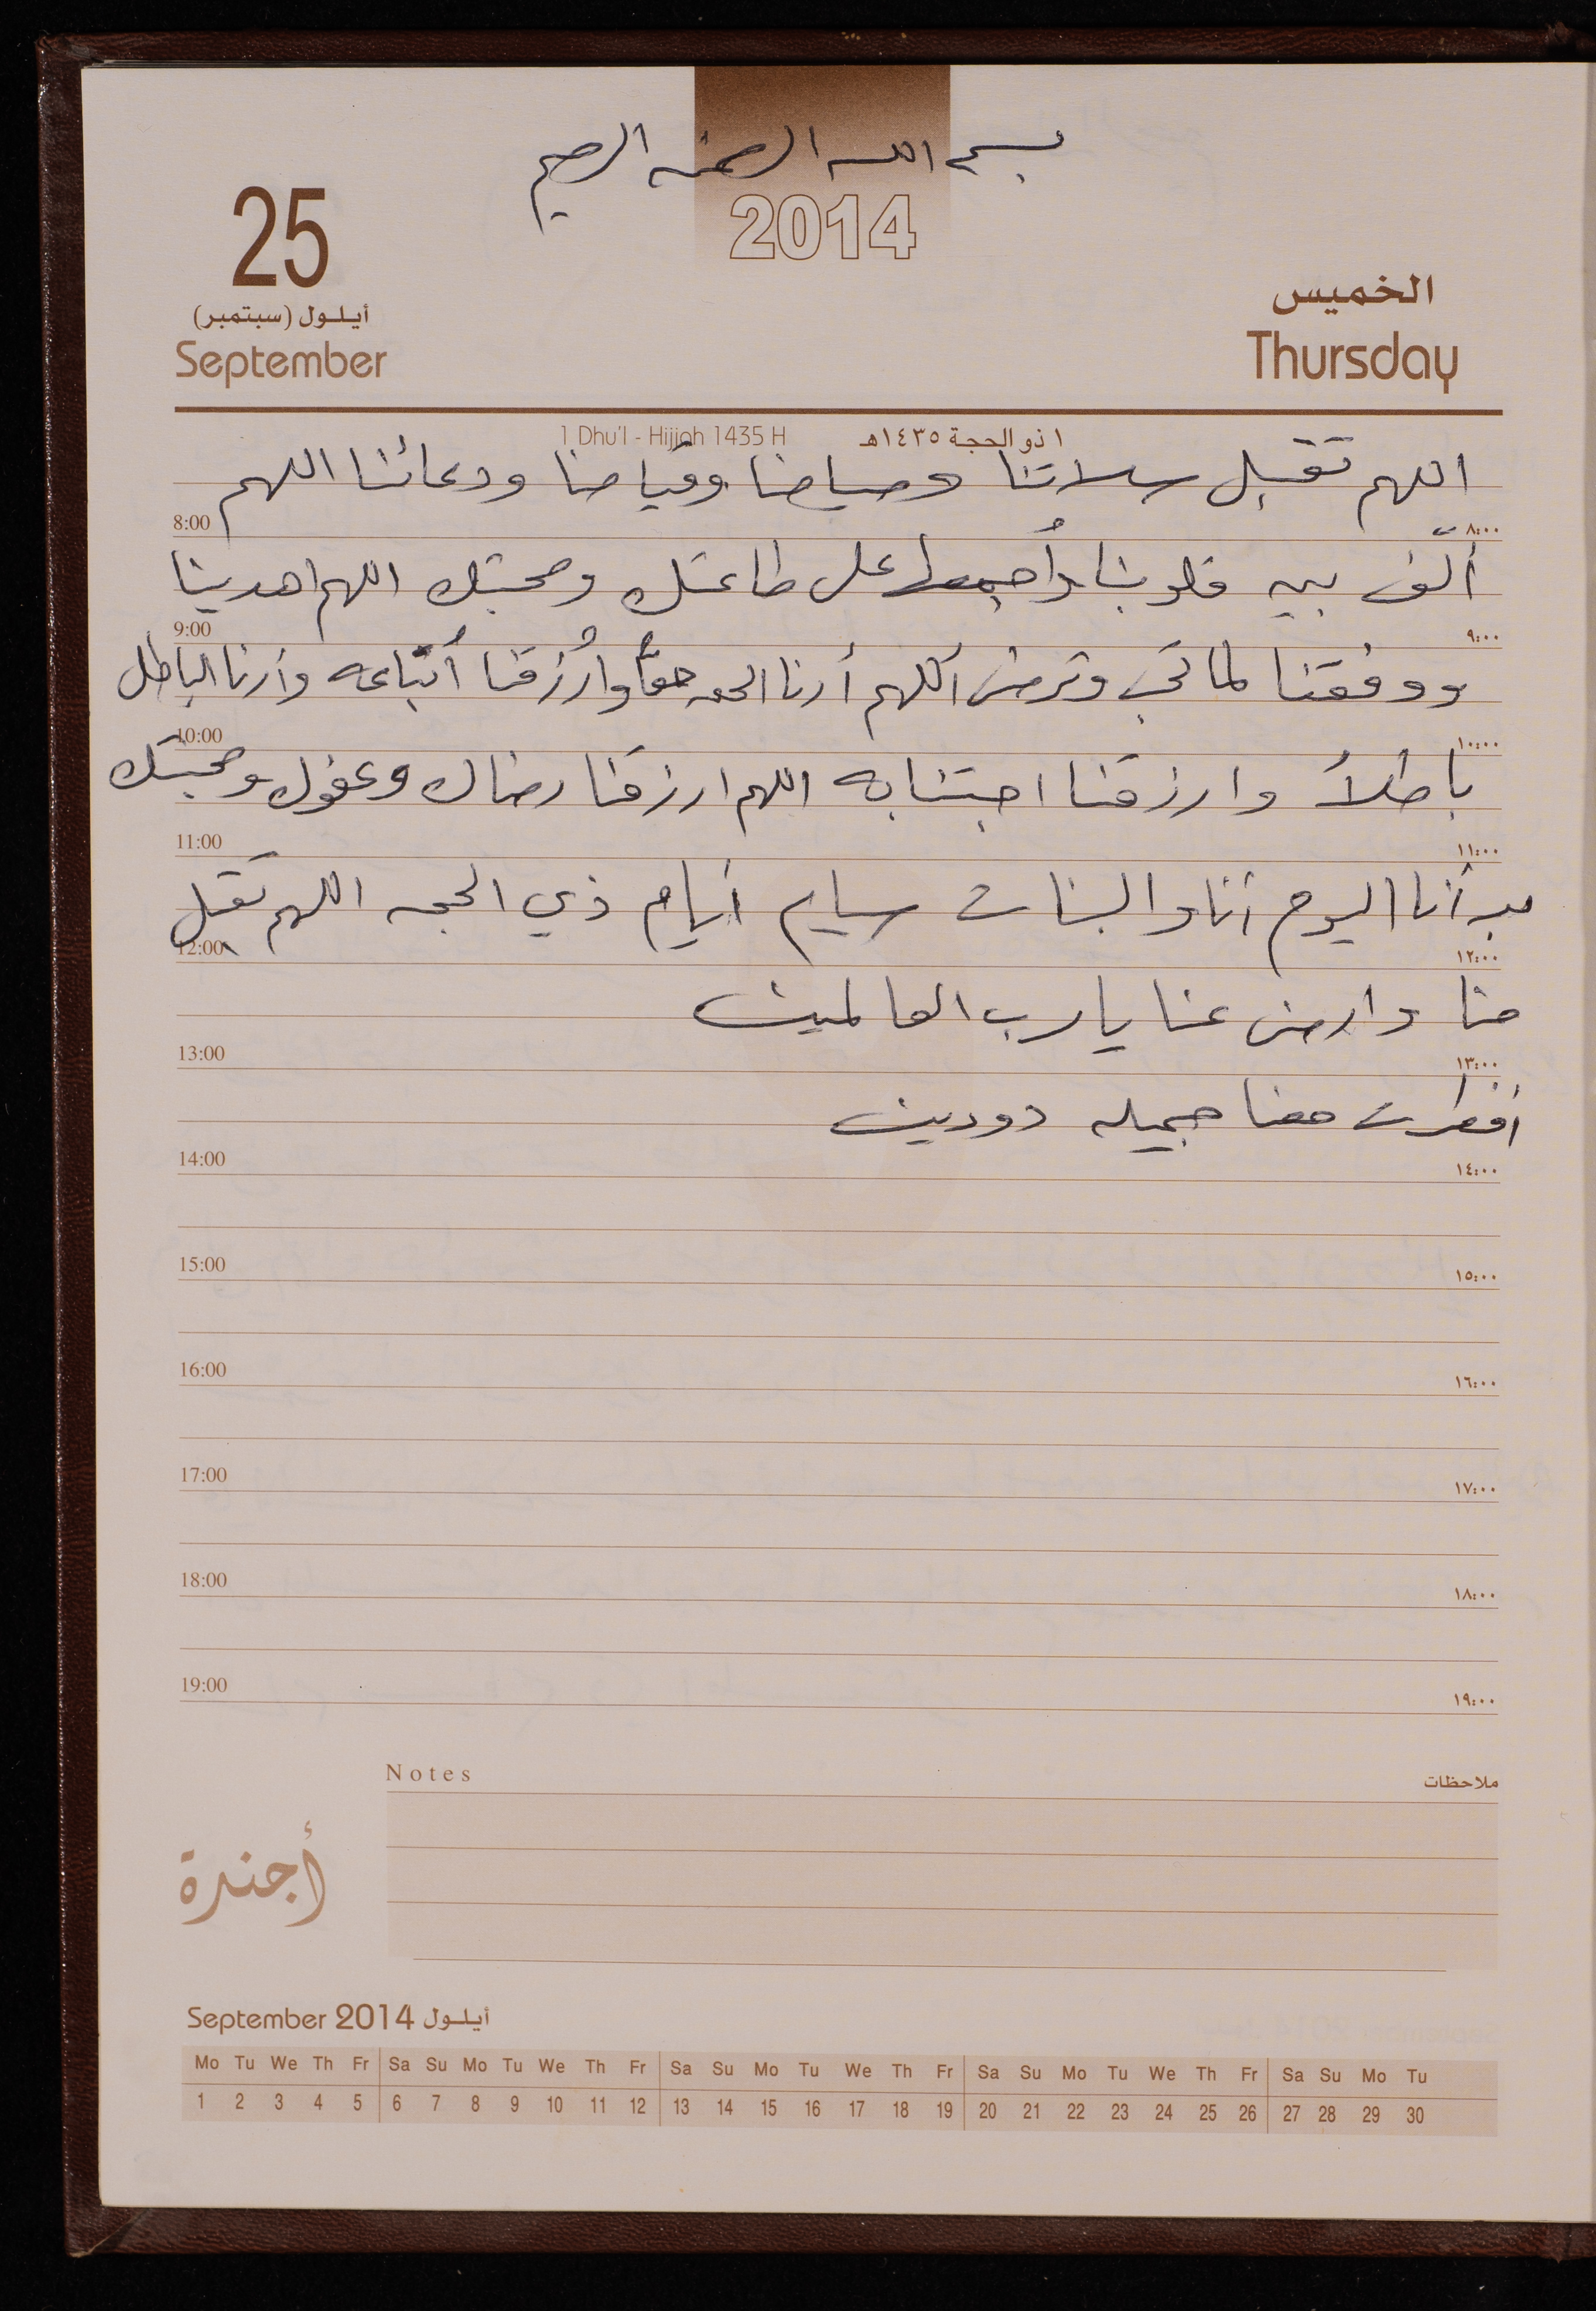 بسم الله الرحمن الرحيم
2014
25
أيلول (سبتمبر)
September
الخميس
Thursday
1 Dhu'l - Hijjah 1435 H
١ ذو الحجة ١٤٣٥هـ
اللهم تقبل صلاتنا وصيامنا وقيامنا ودعائنا اللهم
8:00 ٨:٠٠
ألّف بين قلوبنا وأجمعها على طاعتك ومحبتك اللهم اهدينا
9:00 ٩:٠٠
ووفقنا لما تحب وترضى اللهم أرنا الحق حقاً وأرزقنا أتباعه وأرنا الباطل
10:00 ١٠:٠٠
باطلاً وارزقنا اجتنابه اللهم ارزقنا رضاك وعفوك ومحبتك
11:00 ١١:٠٠
بدأنا اليوم أنا والبنات صيام أيام ذي الحجه اللهم تقبل
12:00 ١٢:٠٠
منا وارض عنا يا رب العالمين
13:00 ١٣:٠٠
أفطرت معنا جميله دودين
14:00 ١٤:٠٠
15:00 ١٥:٠٠
16:00 ١٦:٠٠
17:00 ١٧:٠٠
18:00 ١٨:٠٠
19:00 ١٩:٠٠
Notes ملاحظات
أجندة
September 2014 أيلول
Mo Tu We Th Fr Sa Su Mo Tu We Th Fr Sa Su Mo Tu We Th Fr Sa Su Mo Tu We Th Fr Sa Su Mo Tu
1 2 3 4 5 6 7 8 9 10 11 12 13 14 15 16 17 18 19 20 21 22 23 24 25 26 27 28 29 30